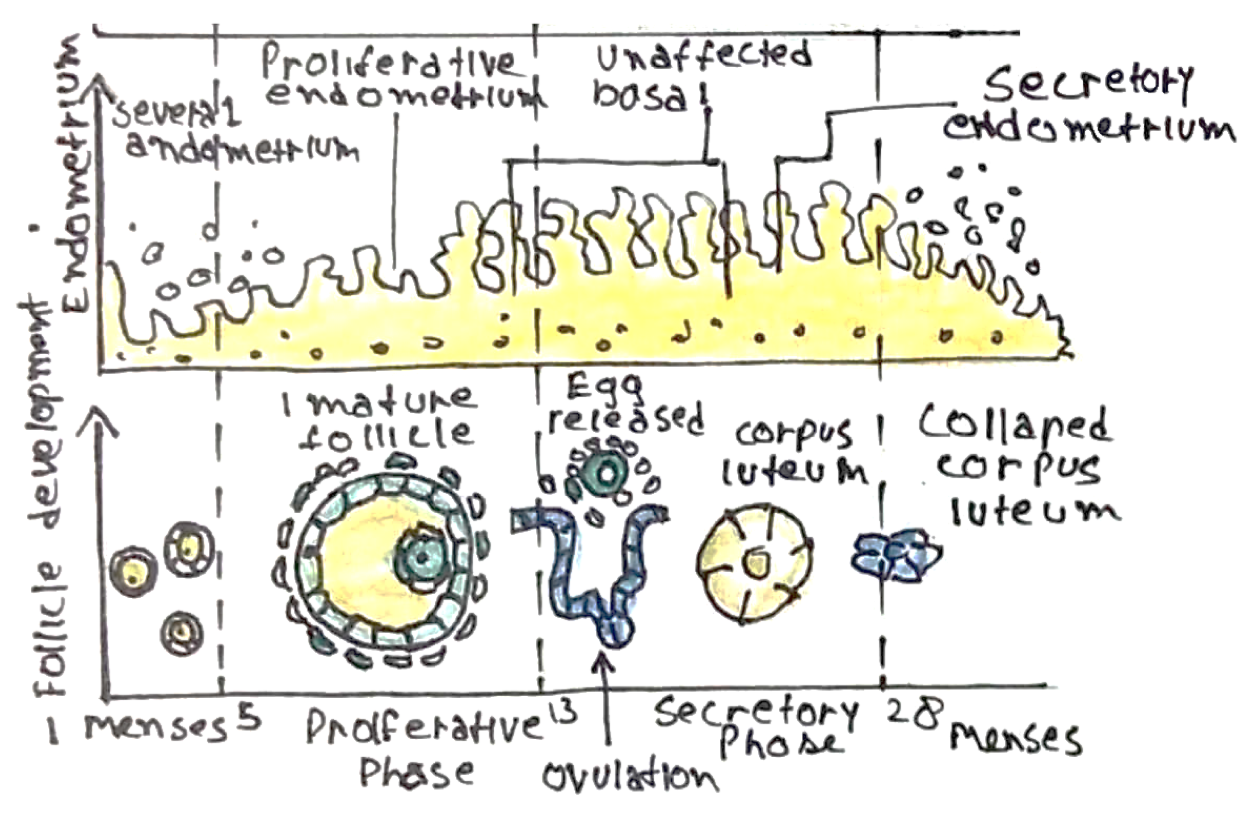 Endometrium
several
andometrium
Proliferative
endometrium
unaffected
basal
Secretory
endometrium
Follicle development
1 mature
follicle
Egg
released
corpus
luteum
Collaped
corpus
luteum
1 menses 5
Prolferative
Phase
13
ovulation
Secretory
Phase
28
menses